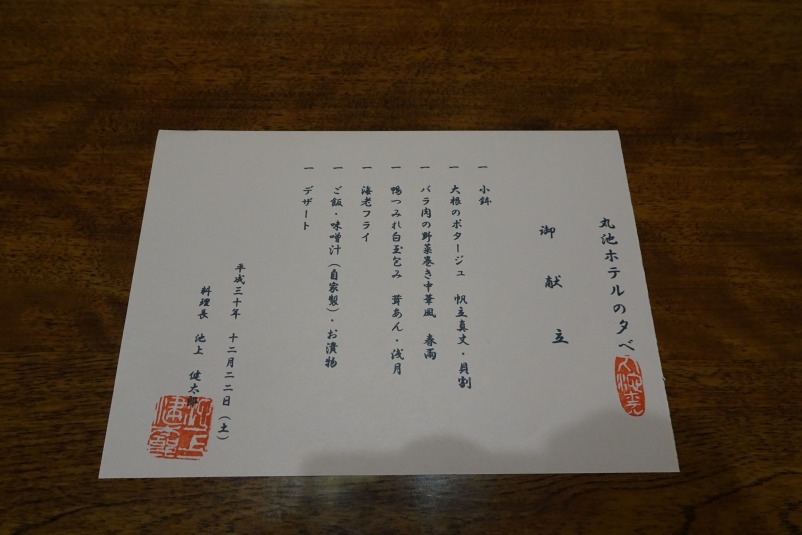 丸池ホテルの夕べ
御献立
一 小鉢
一 大根のポタージュ 帆立真丈・貝割
一 バラ肉の野菜巻き中華風 春雨
一 鴨つみれ白玉包み 茸あん・浅月
一 海老フライ
一 ご飯・味噌汁（自家製）・お漬物
一 デザート
平成三十年 十二月二二日（土）
料理長 池上 健太郎